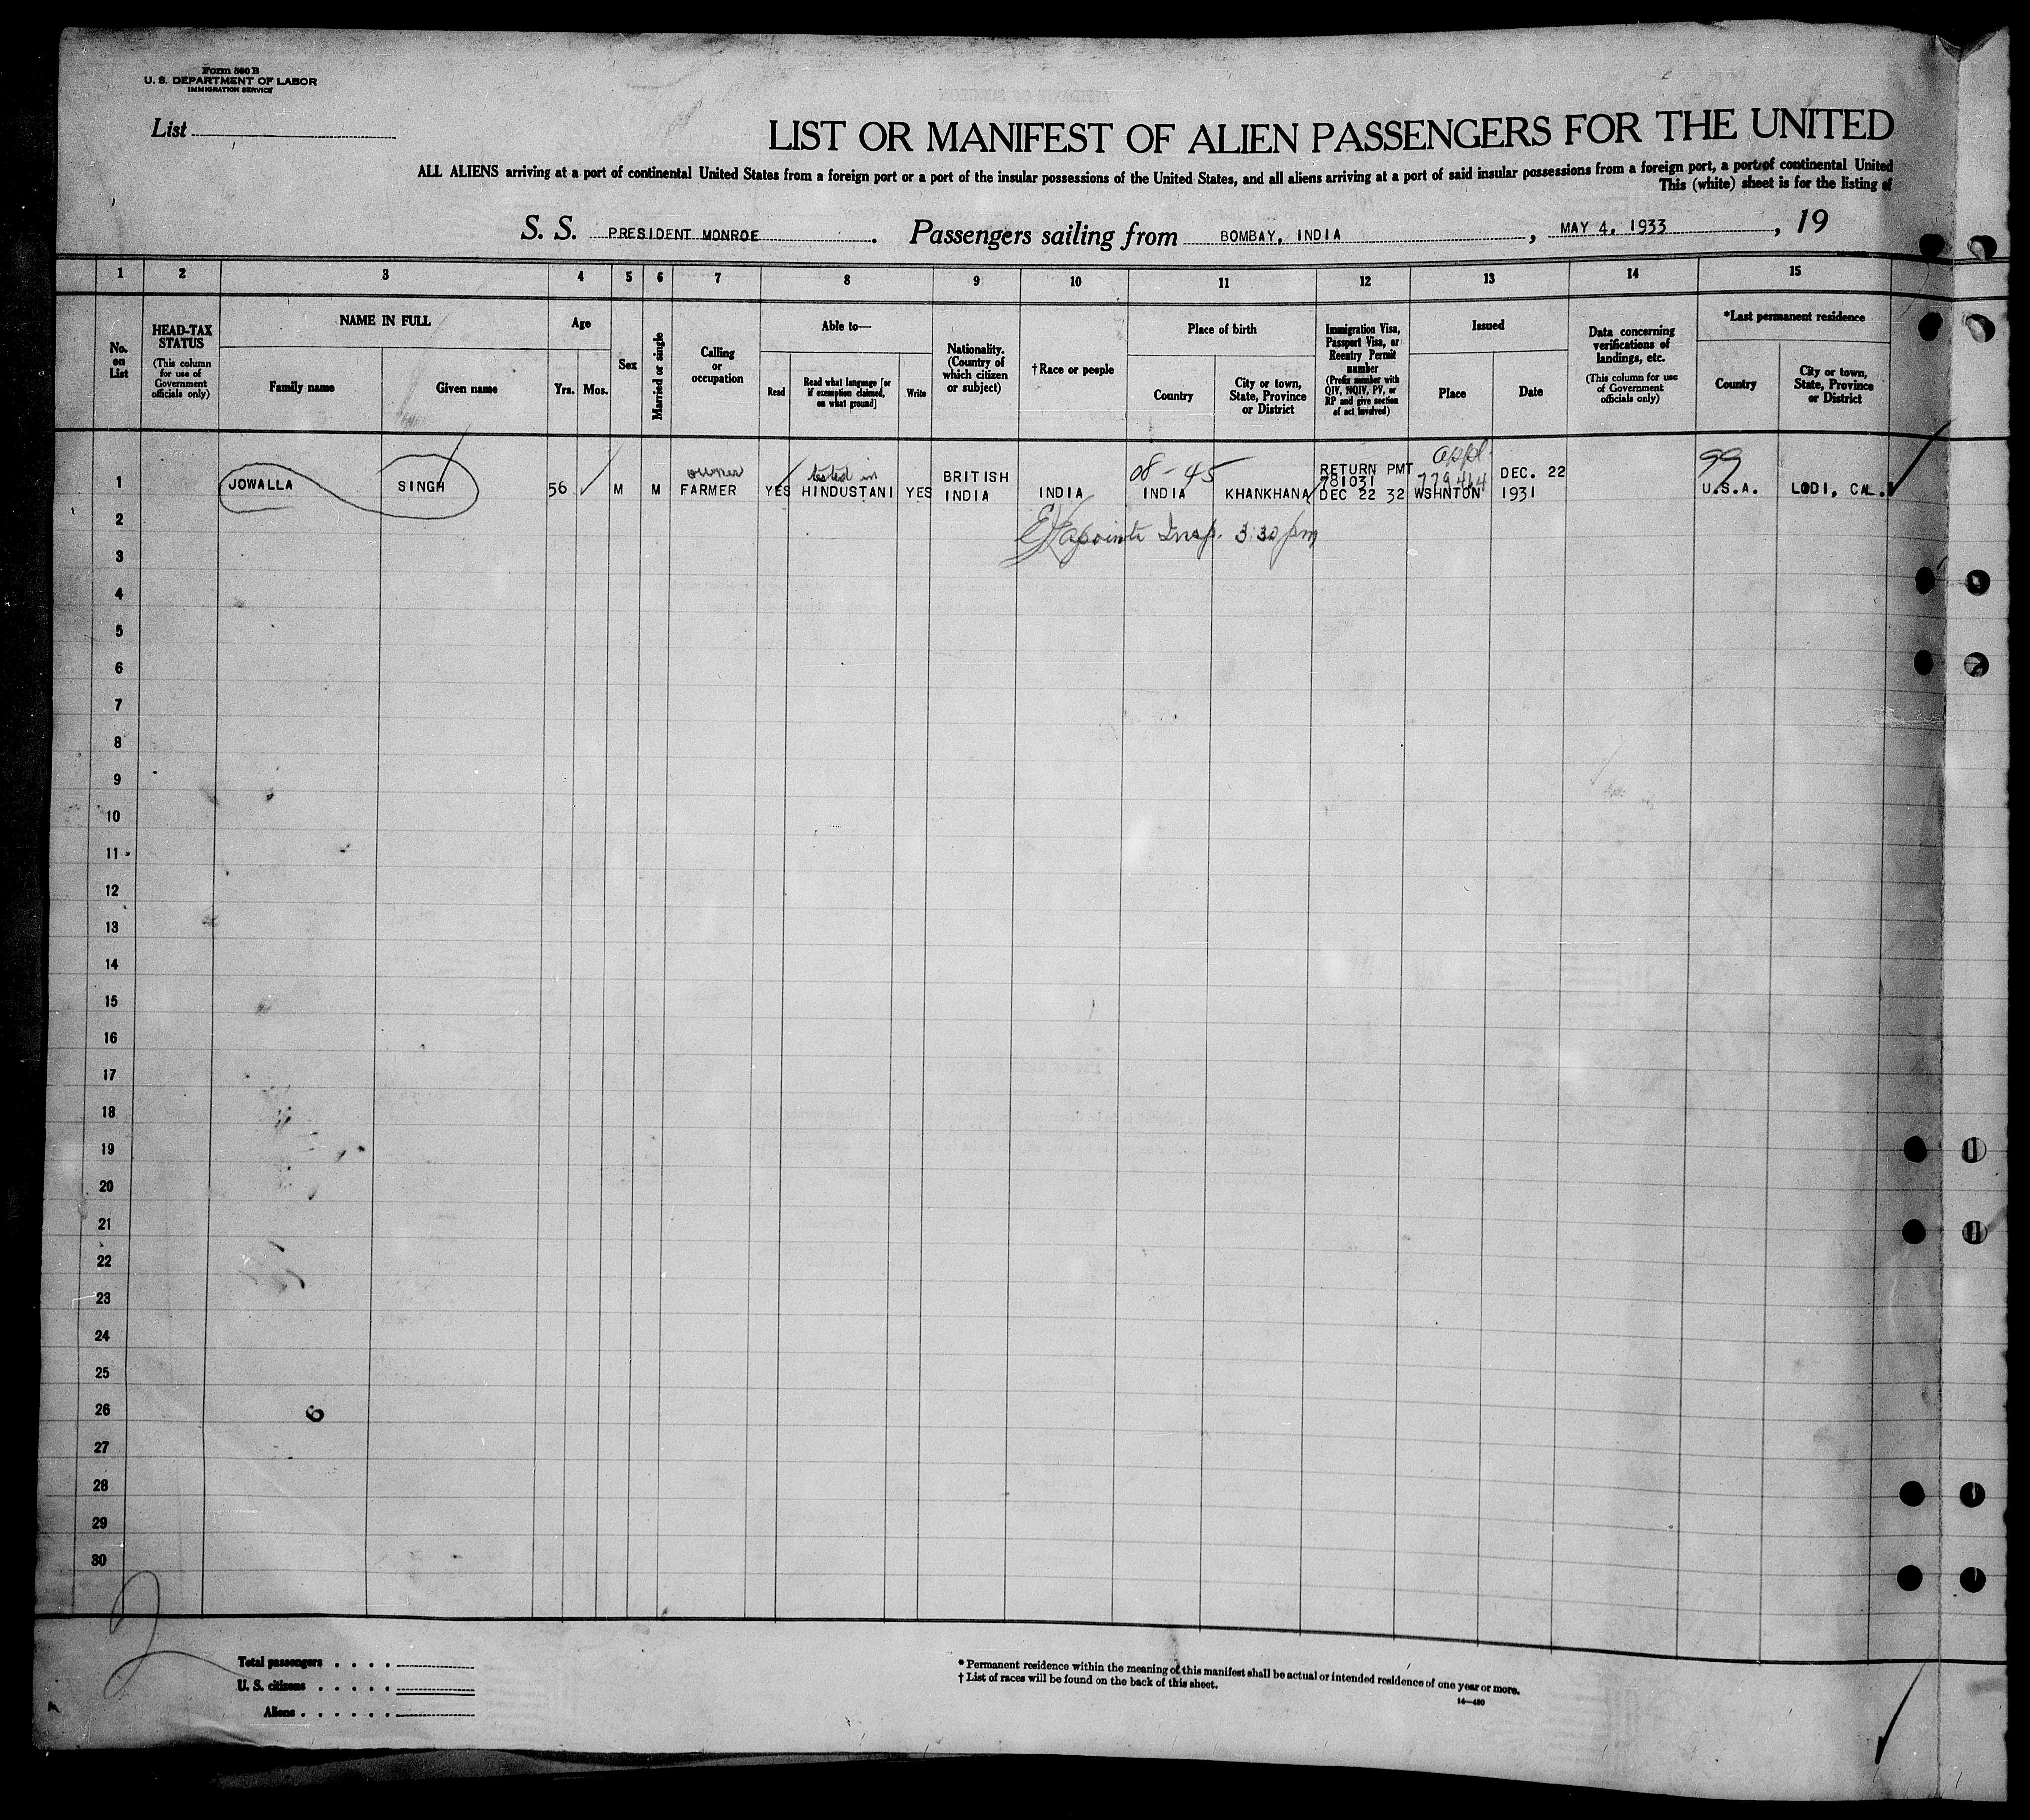 Form 500 B
U. S. DEPARTMENT OF LABOR
IMMIGRATION SERVICE
List
LIST OR MANIFEST OF ALIEN PASSENGERS FOR THE UNITED
ALL ALIENS arriving at a port of continental United States from a foreign port or a port of the insular possessions of the United States, and all aliens arriving at a port of said insular possessions from a foreign port, a port of continental United
This (white) sheet is for the listing of
S. S. PRESIDENT MONROE . Passengers sailing from BOMBAY, INDIA , MAY 4, 1933 , 19
1 2 3 4 5 6 7 8 9 10 11 12 13 14 15
No. on List
HEAD-TAX STATUS
(This column for use of Government officials only)
NAME IN FULL
Family name
Given name
Age
Yrs. Mos.
Sex
Married or single
Calling or occupation
Able to—
Read
Read what language [or if exemption claimed, on what ground]
Write
Nationality. (Country of which citizen or subject)
† Race or people
Place of birth
Country
City or town, State, Province or District
Immigration Visa, Passport Visa, or Reentry Permit number
(Prefix number with QIV, NQIV, PV, or RP and give section of act involved)
Issued
Place
Date
Data concerning verifications of landings, etc.
(This column for use of Government officials only)
*Last permanent residence
Country
City or town, State, Province or District
owner tested in 08-45 appl. 99
BRITISH RETURN PMT DEC. 22
781031 779464
1 JOWALLA SINGH 56 M M FARMER YES HINDUSTANI YES INDIA INDIA INDIA KHANKHANA DEC 22 32 WSHNTON 1931 U.S.A. LODI, CAL.
2
Insp. 3 30 pm
3
4
5
6
7
8
9
10
11
12
13
14
15
16
17
18
19
20
21
22
23
24
25
26
6
27
28
29
30
2
Total passengers
U. S. citizens
Aliens
* Permanent residence within the meaning of this manifest shall be actual or intended residence of one year or more.
† List of races will be found on the back of this sheet.
14—480